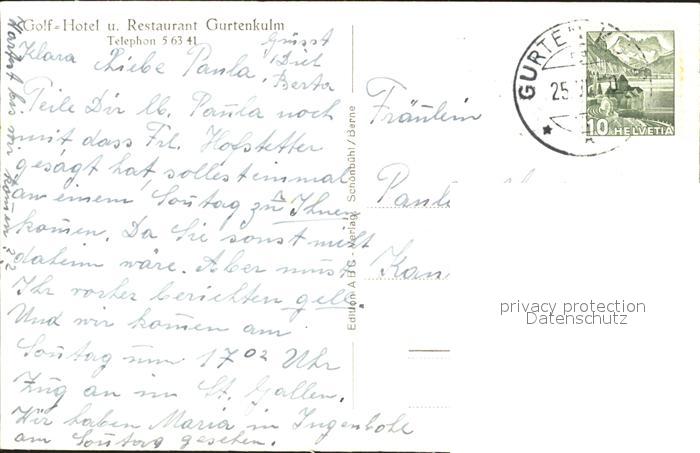 Golf-Hotel u. Restaurant Gurtenkulm
Telephon 5 63 41
Grüsst
Dich
Berta
Klara
Liebe Paula,
Teile Dir lb. Paula noch
mit dass Frl. Hofstetter
gesagt hat, sollest einmal
an einem Sontag zu Ihnen
komen. Da Sie sonst nicht
daheim wäre. Aber must
Ihr vorher berichten gell.
Und wir komen am
Sontag um 17 02 Uhr
Zug an in St. Gallen.
Wir haben Maria in Ingenbohl
am Sontag gesehen.
Wartest bis wir komen??
Edition ABC-Verlag, Schönbühl/Berne
Fräulein
GURTEN
25
10 HELVETIA
privacy protection
Datenschutz